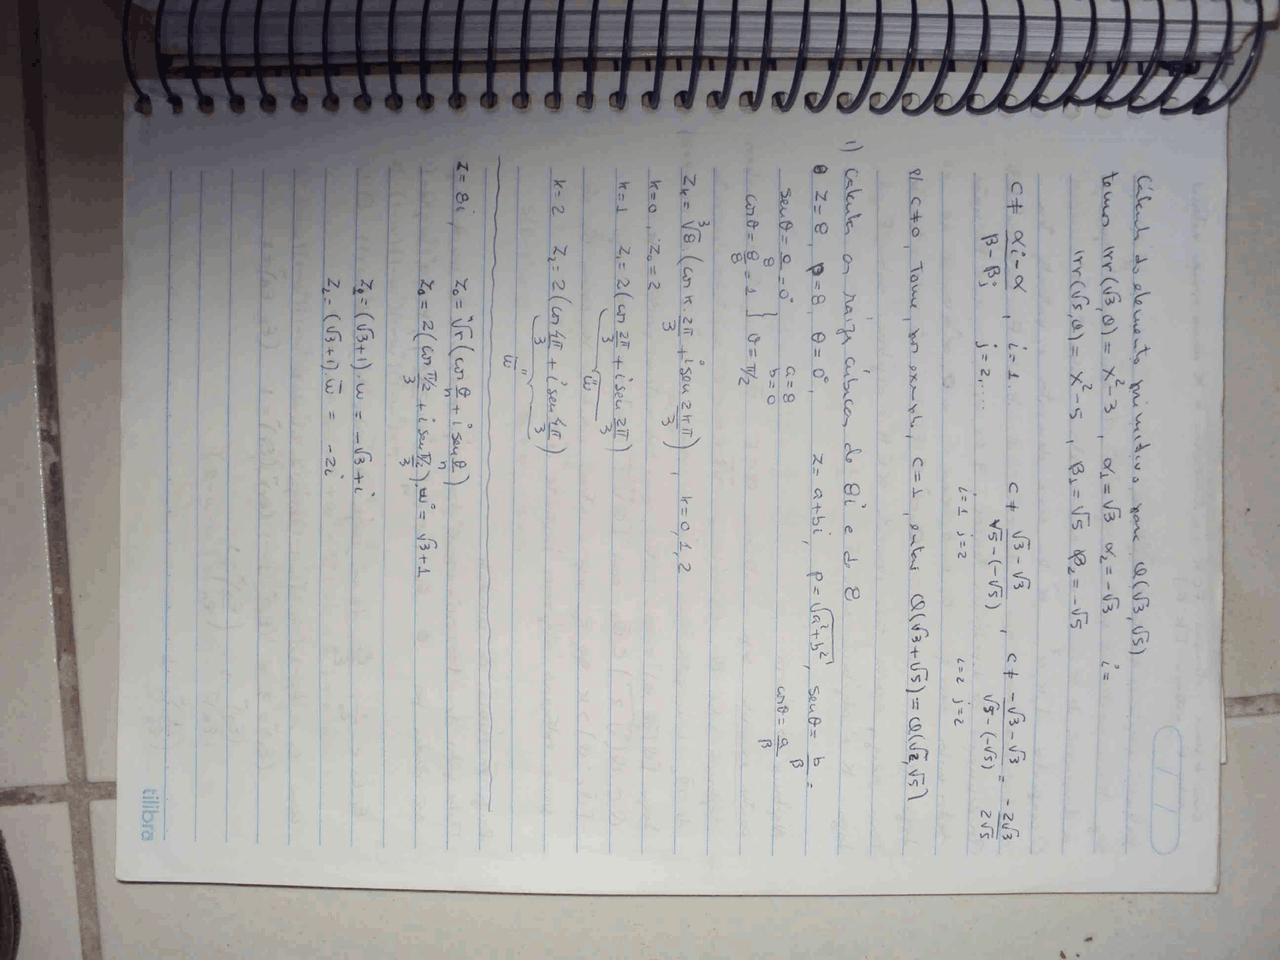 Cálculo do elemento primitivo para Q(√3, √5)
temos irr(√3, Q) = x²-3 , α₁ = √3 α₂ = -√3 i =
irr(√5, Q) = x²-5 , β₁ = √5 β₂ = -√5
c ≠ αi - α / β - βj , i = 1... j = 2,.... c ≠ √3 - √3 / √5 - (-√5) , c ≠ -√3 - √3 / √5 - (-√5) = -2√3 / 2√5
i = 1 j = 2 i = 2 j = 2
p/ c ≠ 0, Tome, por exemplo, c = 1, então Q(√3 + √5) = Q(√2, √5)
1) Calcular as raízes cúbicas de 8i e de 8
z = 8, ρ = 8, θ = 0°, z = a + bi, ρ = √a² + b², senθ = b/β =
senθ = 0/8 = 0° a = 8 b = 0 cosθ = a/β
cosθ = 8/8 = 1 } θ = π/2
Zk = ³√8 (cos k.2π/3 + i sen 2kπ/3), k = 0, 1, 2
k = 0, Z₀ = 2
k = 1 Z₁ = 2(cos 2π/3 + i sen 2π/3)
w
k = 2 Z₂ = 2(cos 4π/3 + i sen 4π/3)
"
w̅
z = 8i, Z₀ = ⁿ√r (cos θ/n + i sen θ/n)
Z₀ = 2(cos π/2/3 + i sen π/2/3) = √3 + 1
Z₁ = (√3+1).w = -√3 + i
Z₂ = (√3+1).w̅ = -2i
tilibra